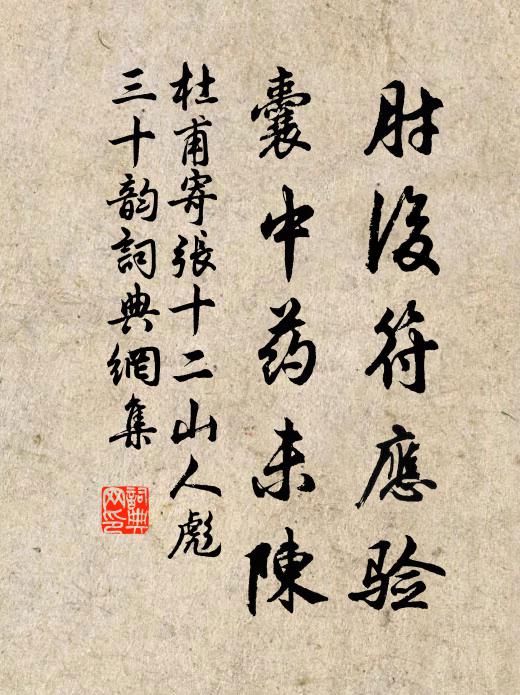 肘後符應验
囊中药未陳
杜甫寄張十二山人彪
三十韵詞典網集
詞典网印